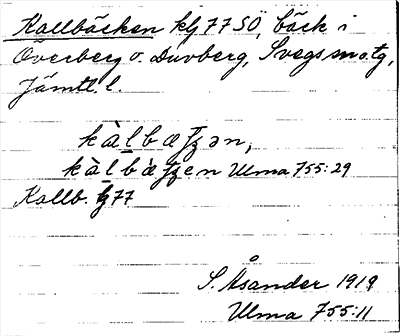 Kallbäcken kg 77 SO, bäck i
Överberg o. Duvberg, Svegs m o. tg,
Jämtl l.
kàlbæʈʂən,
kàlbæ̀ʈʂen Ulma 755:29
Kallb. kg 77
S. Åsander 1919
Ulma 755:11